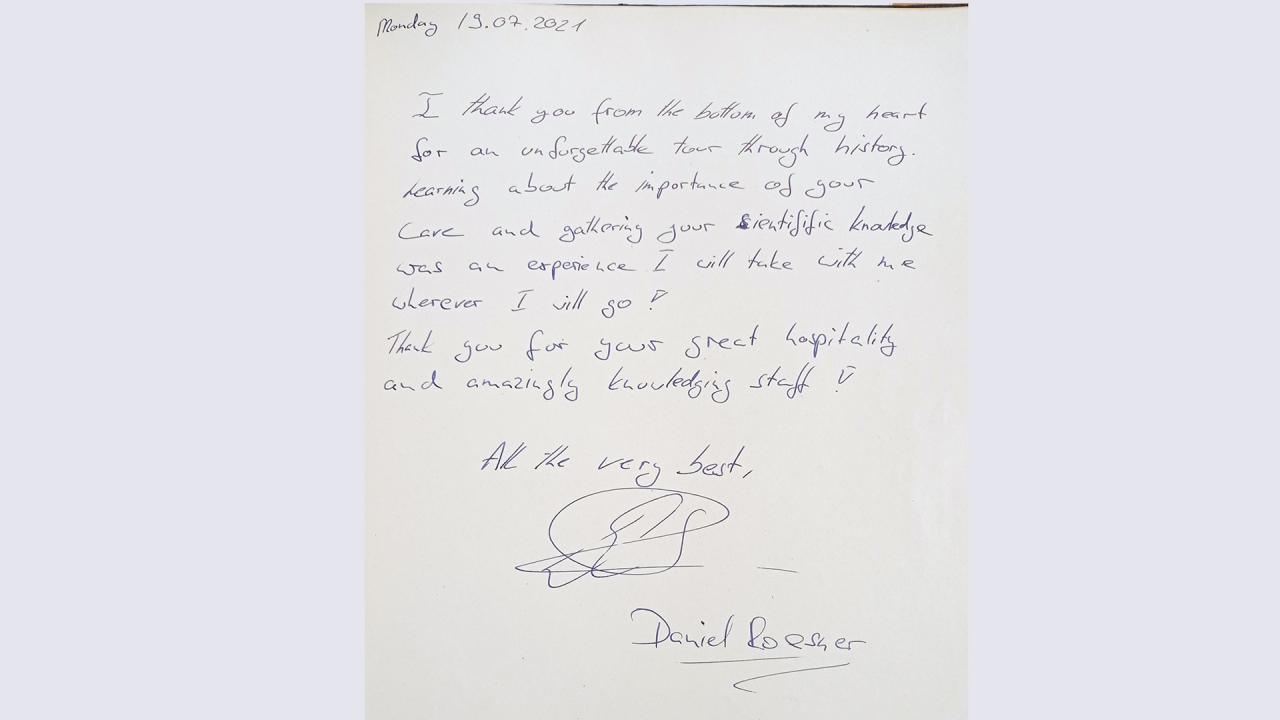 Monday 19.07.2021
I thank you from the bottom of my heart
for an unforgettable tour through history.
Learning about the importance of your
care and gathering your scientifific knowledge
was an experience I will take with me
wherever I will go !
Thank you for your great hospitality
and amazingly knowledging staff !
All the very best,
Daniel Roesner